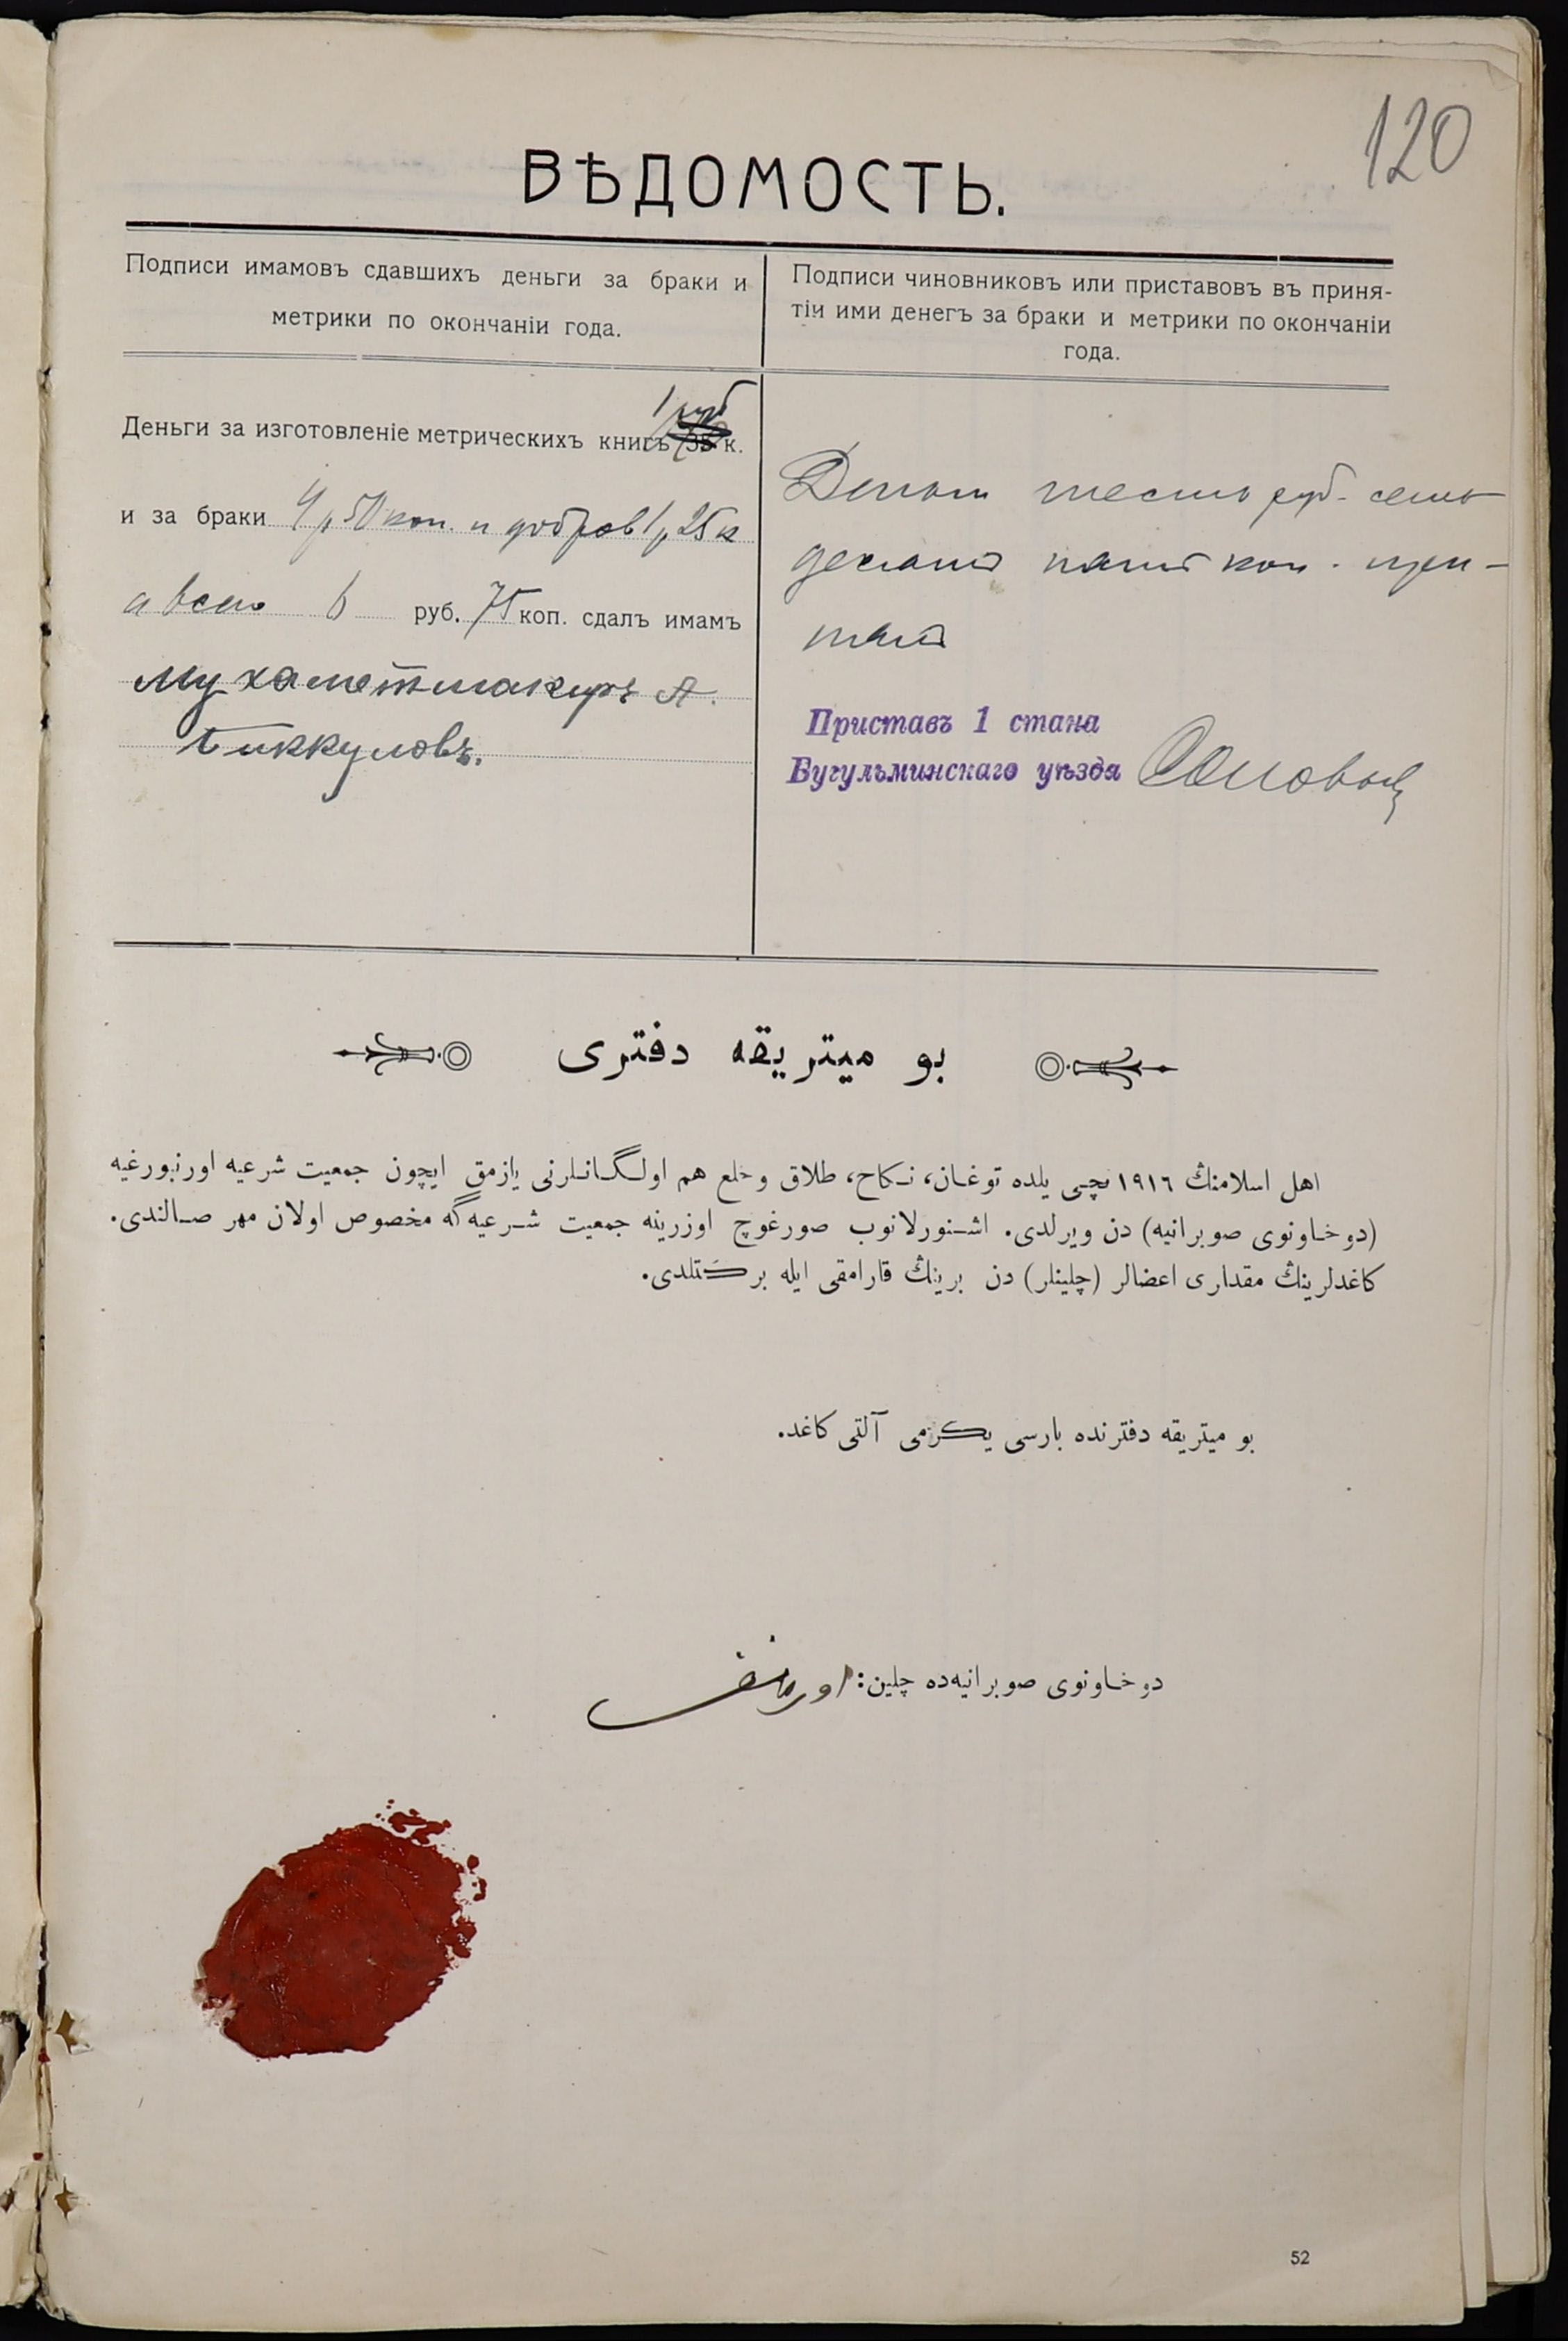 120
ВѢДОМОСТЬ.
Подписи имамовъ сдавшихъ деньги за браки и
метрики по окончаніи года.
Подписи чиновниковъ или приставовъ въ приня-
тіи ими денегъ за браки и метрики по окончаніи
года.
1 руб
Деньги за изготовленіе метрическихъ книгъ 35 к.
и за браки 4 р 50 коп. и 1 р 25 к
а всего 6 руб. 75 коп. сдалъ имамъ
Мухаметшакиръ А.
Биккуловъ.
Деньги шесть руб. семь
десятъ пять коп. при-
нялъ
Приставъ 1 стана
Бугульминскаго уѣзда
بو ميتريقه دفترى
اهل اسلامنڭ ١٩١٦ نچى يلده توغان، نكاح، طلاق وخلع هم اولگانلرنى يازمق ايچون جمعيت شرعيه اورنبورغيه
(دوخاونوى صوبرانيه) دن ويرلدى. اشنورلانوب صورغوچ اوزرينه جمعيت شرعيه‌گه مخصوص اولان مهر صالندى.
كاغدلرينڭ مقدارى اعضالر (چلينلر) دن برينڭ قارامقى ايله بركتلدى.
بو ميتريقه دفترنده بارسى يكرمى آلتى كاغد.
دوخاونوى صوبرانيه‌ده چلين:
52